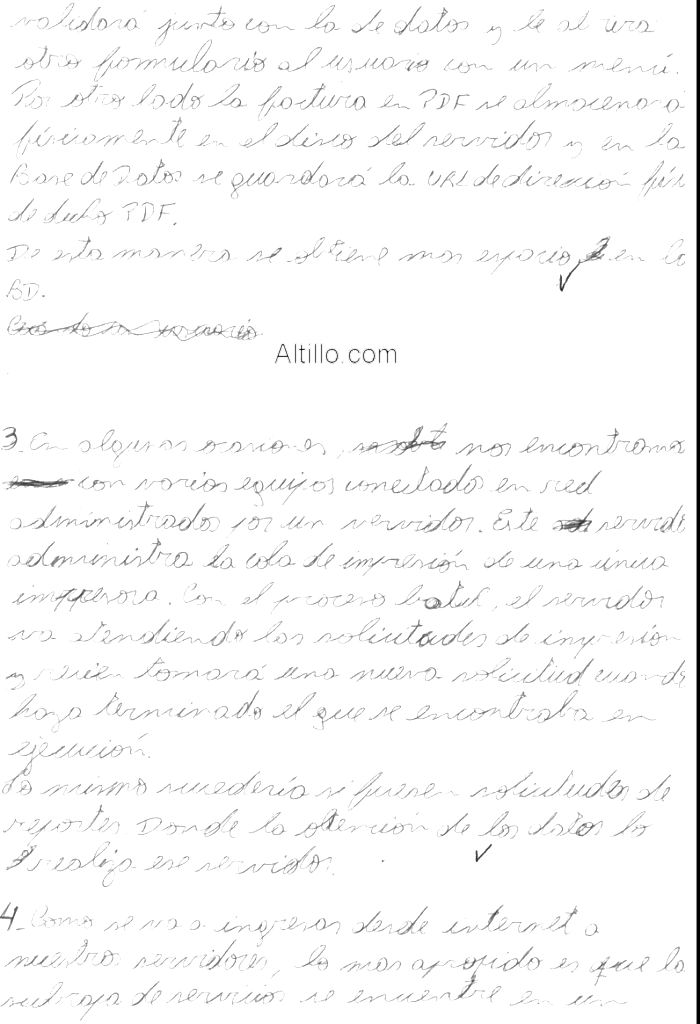 validará junto con la de datos y le al
otro formulario al usuario con un menú.
Por otro lado la factura en PDF se almacenará
físicamente en el disco del servidor y en la
Base de Datos se guardará la URL de dirección físi
de dicho PDF.
De esta manera se obtiene mas espacio en la
BD.
Altillo.com
3. En algunas ocasiones, nos encontramos
con varios equipos conectados en red
administrados por un servidor. Este servido
administra la cola de impresión de una única
impresora. Con el proceso batch, el servidor
va atendiendo las solicitudes de impresión
y recien tomará una nueva solicitud cuando
haya terminado el que se encontraba en
ejecución.
Lo mismo sucedería si fuesen solicitudes de
reportes Donde la obtención de los datos lo
realiza ese servidor.
4. Como se va a ingresar desde internet a
nuestros servidores, lo mas apropido es que la
subcapa de servicios se encuentre en un